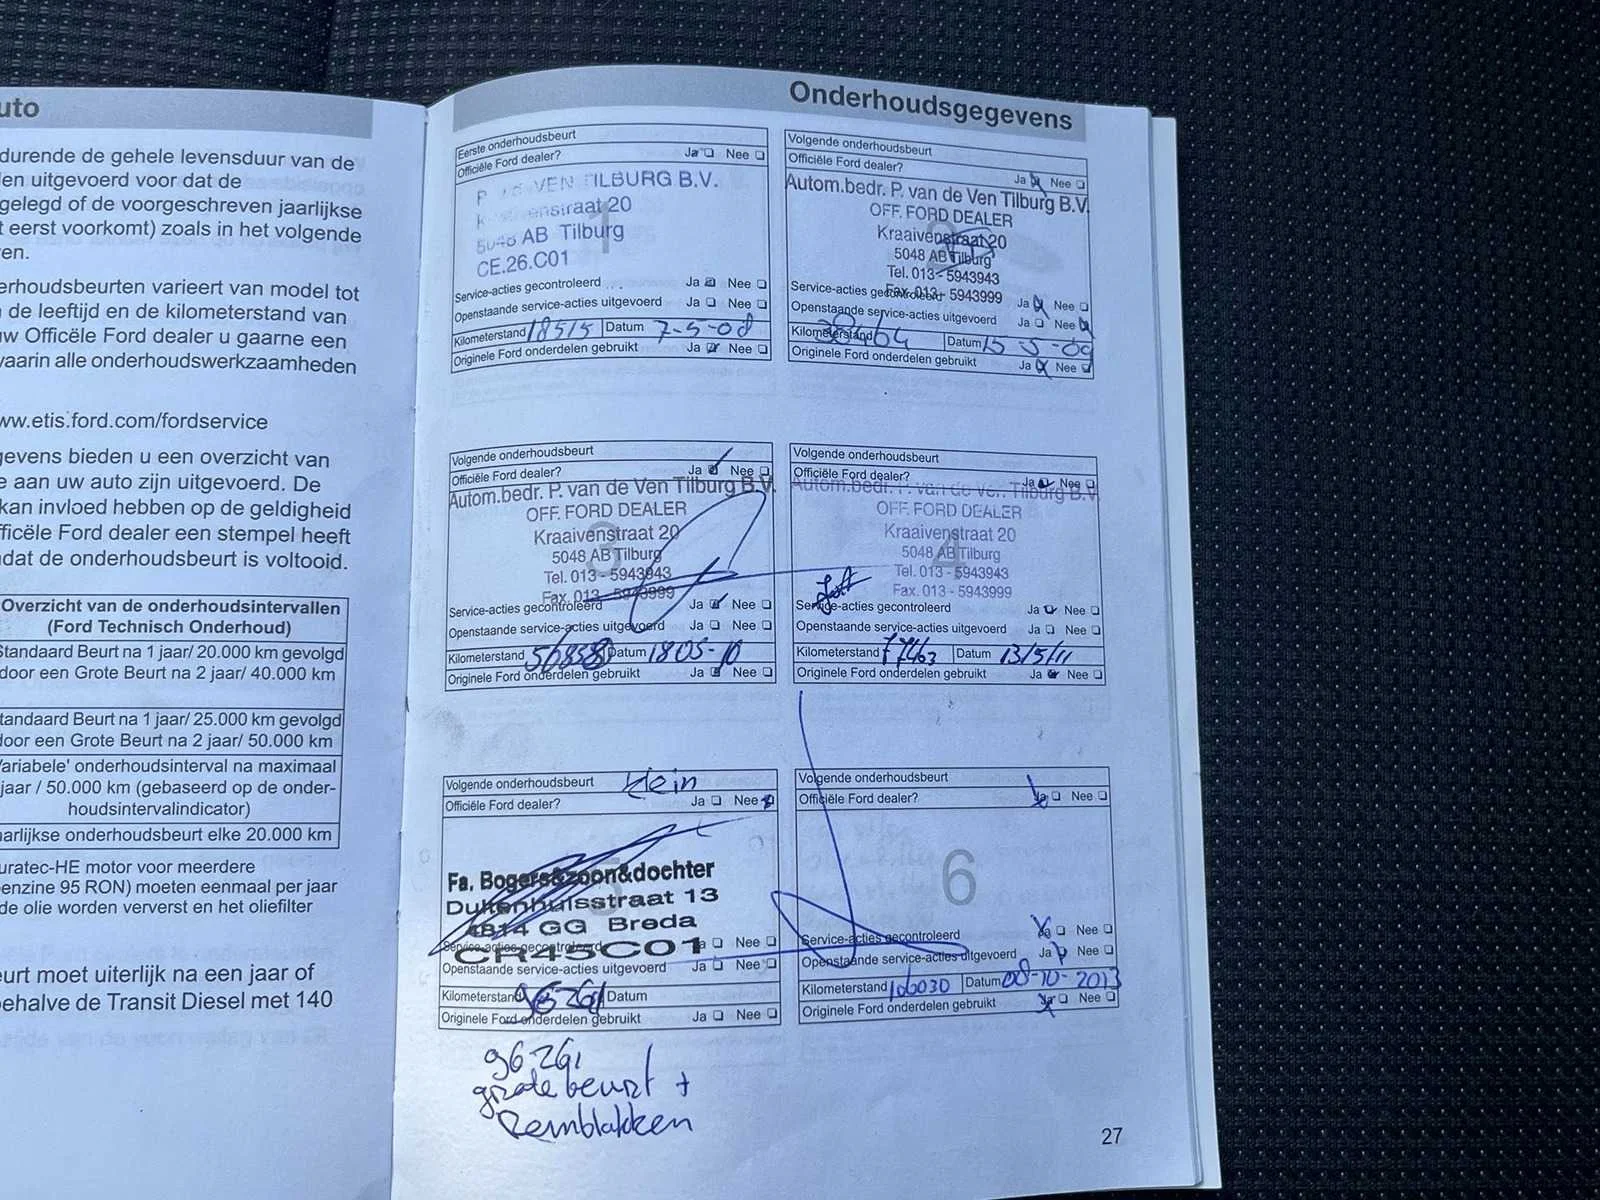 uto
durende de gehele levensduur van de
len uitgevoerd voor dat de
gelegd of de voorgeschreven jaarlijkse
t eerst voorkomt) zoals in het volgende
ven.
erhoudsbeurten varieert van model tot
de leeftijd en de kilometerstand van
uw Officële Ford dealer u gaarne een
waarin alle onderhoudswerkzaamheden
ww.etis.ford.com/fordservice
gevens bieden u een overzicht van
e aan uw auto zijn uitgevoerd. De
kan invloed hebben op de geldigheid
fficële Ford dealer een stempel heeft
dat de onderhoudsbeurt is voltooid.
Overzicht van de onderhoudsintervallen
(Ford Technisch Onderhoud)
Standaard Beurt na 1 jaar/ 20.000 km gevolgd
door een Grote Beurt na 2 jaar/ 40.000 km
tandaard Beurt na 1 jaar/ 25.000 km gevolgd
door een Grote Beurt na 2 jaar/ 50.000 km
'ariabele' onderhoudsinterval na maximaal
jaar / 50.000 km (gebaseerd op de onder-
houdsintervalindicator)
aarlijkse onderhoudsbeurt elke 20.000 km
uratec-HE motor voor meerdere
benzine 95 RON) moeten eenmaal per jaar
de olie worden ververst en het oliefilter
eurt moet uiterlijk na een jaar of
behalve de Transit Diesel met 140
Onderhoudsgegevens
Eerste onderhoudsbeurt
Officiële Ford dealer? Ja Nee
VEN TILBURG B.V.
straat 20
5048 AB Tilburg
CE.26.C01
1
Service-acties gecontroleerd Ja Nee
Openstaande service-acties uitgevoerd Ja Nee
Kilometerstand 18515 Datum 7-5-08
Originele Ford onderdelen gebruikt Ja Nee
Volgende onderhoudsbeurt
Officiële Ford dealer? Ja Nee
Autom.bedr. P. van de Ven Tilburg B.V.
OFF. FORD DEALER
Kraaivenstraat 20
5048 AB Tilburg
Tel. 013 - 5943943
Fax. 013 - 5943999
2
Service-acties gecontroleerd Ja Nee
Openstaande service-acties uitgevoerd Ja Nee
Kilometerstand Datum 15-5-09
Originele Ford onderdelen gebruikt Ja Nee
Volgende onderhoudsbeurt
Officiële Ford dealer? Ja Nee
Autom.bedr. P. van de Ven Tilburg B.V.
OFF. FORD DEALER
Kraaivenstraat 20
5048 AB Tilburg
Tel. 013 - 5943943
Fax. 013 - 5943999
3
Service-acties gecontroleerd Ja Nee
Openstaande service-acties uitgevoerd Ja Nee
Kilometerstand Datum 18 05-10
Originele Ford onderdelen gebruikt Ja Nee
Volgende onderhoudsbeurt
Officiële Ford dealer? Ja Nee
Autom.bedr. P. van de Ven Tilburg B.V.
OFF. FORD DEALER
Kraaivenstraat 20
5048 AB Tilburg
Tel. 013 - 5943943
Fax. 013 - 5943999
4
Service-acties gecontroleerd Ja Nee
Openstaande service-acties uitgevoerd Ja Nee
Kilometerstand 77463 Datum 13/5/11
Originele Ford onderdelen gebruikt Ja Nee
Volgende onderhoudsbeurt klein
Officiële Ford dealer? Ja Nee
Fa. Bogers&zoon&dochter
Duitenhuisstraat 13
4814 GG Breda
CR45C01
5
Service-acties gecontroleerd Ja Nee
Openstaande service-acties uitgevoerd Ja Nee
Kilometerstand 96261 Datum
Originele Ford onderdelen gebruikt Ja Nee
96-261
grote beurt +
Remblakken
Volgende onderhoudsbeurt
Officiële Ford dealer? Ja Nee
6
Service-acties gecontroleerd Ja Nee
Openstaande service-acties uitgevoerd Ja Nee
Kilometerstand 106030 Datum 08-10-2013
Originele Ford onderdelen gebruikt Ja Nee
27